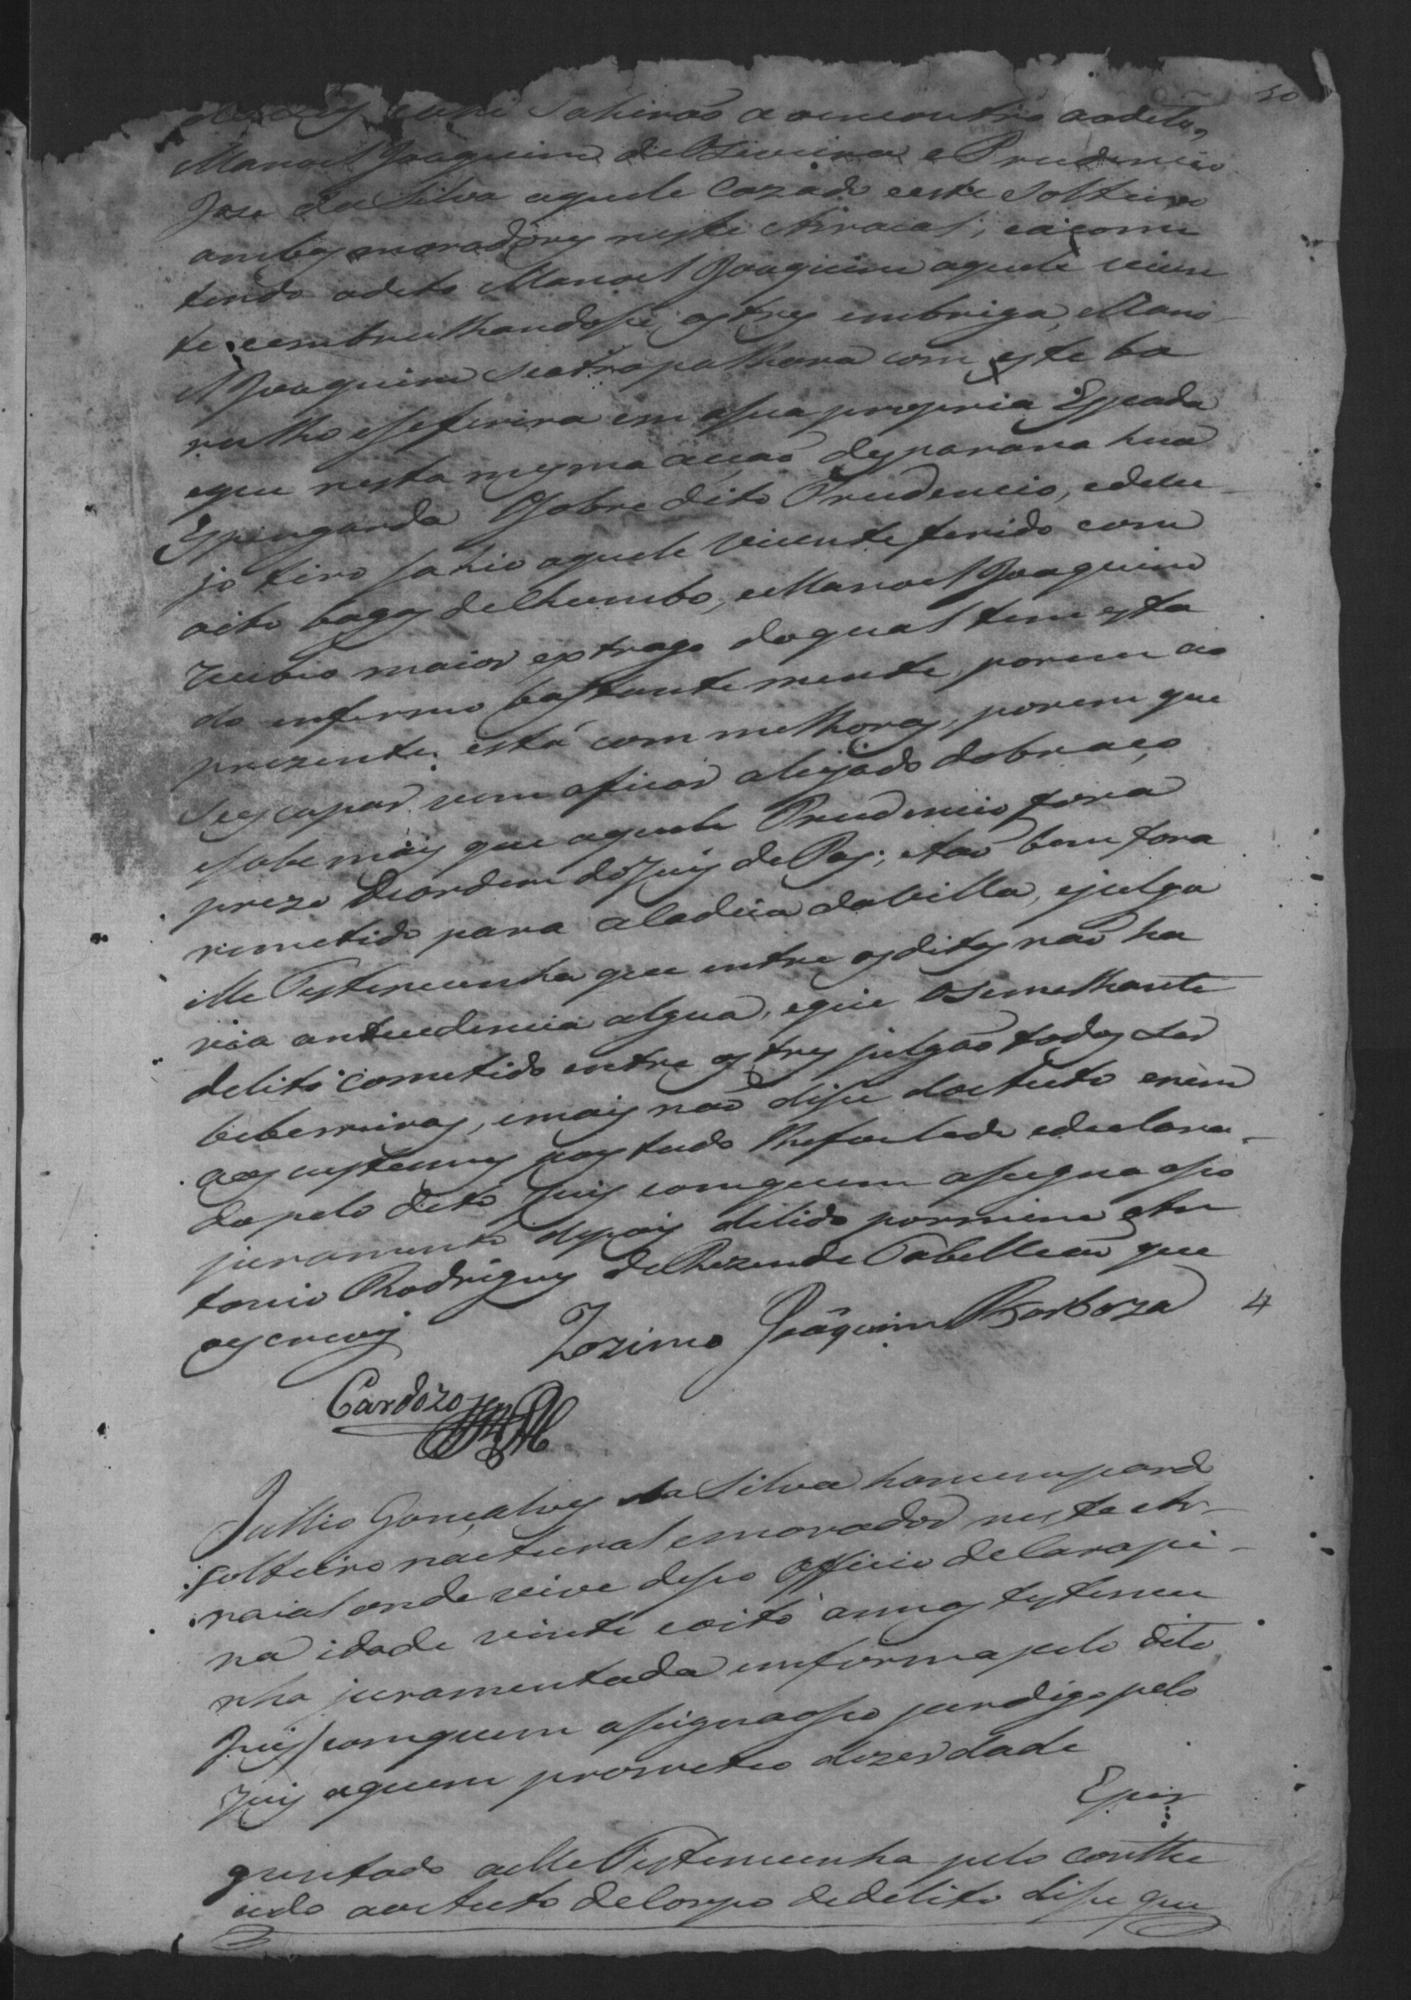 50
cahi Sahiraõ a oencontro aodito,
Manoel Joaquim de Oliveira e Prudencio
Jose da Silva aquele Cazado eeste Solteiro
ambos moradores neste Arraial; eacome
tendo odito Manoel Joaquim aquele vicen
te, eembrulhandosse os tres embriga, Mano-
el Joaquim seatrapalhara com este ba
rulho eseferira em asua propria Espada
eque nesta mesma acçaõ desparara hua
Espingarda Sobre dito Prudencio, edecu
jo tiro sahio aquele Vicente ferido com
oito bagos de Chumbo, eManoel Joaquim
recebio maior estrago doqual tem esta
do enfermo bastantemente, porem ao
prezente está com melhoras, porem que
seescapar vem aficar aleijado dobraço,
esabe mais que aquele Prudencio fora
prezo deordem doJuis de Paz; etaõ bem fora
remetido para aCadeia daVilla, ejulga
elle Testemunha que entre osditos naõ ha
via antecedencia algua, eque osemelhante
delito cometido entre os tres julgaõ todos ser
beberreiras, emais naõ disse doAuto enem
aos custumes poes tudo lhefoi lido edeclara-
do pelo dito Juis comquem assigna oseo
juramento depois delido pormim An
tonio Rodrigues deRezende Tabelleaõ que
oescrevi
Zozimo Joaquim Barboza 4
Cardozo
Jullio Gonçalves da Silva homem pardo
solteiro natural emorador neste Ar-
raial onde vive deseo Officio deCarapi-
na idade vinte eoito annos testemu
nha juramentada emforma pelo dito
Juis comquem assigna oseo jurdigo pelo
Juis aquem prometeo dizer dade
Eper
guntado aelle Testemunha pelo conthe
udo aoAuto deCorpo dedelito disse que